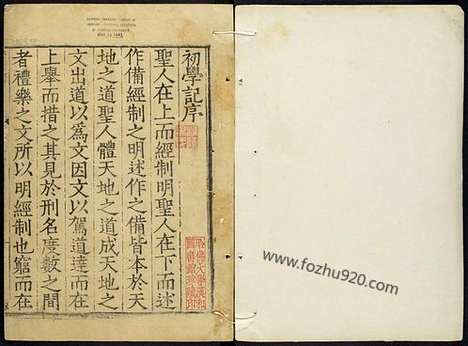 初學記序
聖人在上而經制明聖人在下而述
作備經制之明述作之備皆本於天
地之道聖人體天地之道成天地之
文出道以爲文因文以駕道達而在
上舉而措之其見於刑名度數之間
者禮樂之文所以明經制也窮而在
www.fozhu920.com